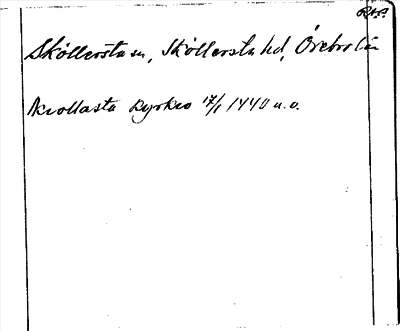 R.A.
Sköllersta sn, Sköllersta hd, Örebro län
Skollasta Kyrkio 17/1 1440 a.o.